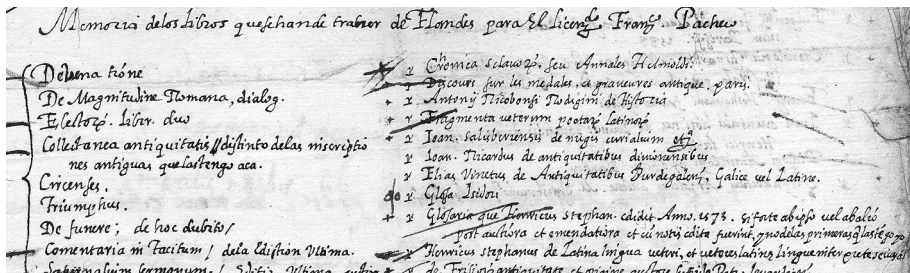 Memoria delos libros que se han de traher de Flandes para El licenço. Franco. Pacheco
De Venatióne
De Magnitudine Romana, dialog.
Electorȝ. libri. duo
Collectanea antiquitatis // distinto delas inscriptio
nes antiguas que las tengo aca.
Circenses.
Triumphus.
De funere; de hoc dubito /
Comentaria in Tacitum / dela Edistion Ultima.
Saturnalium sermonum / Editio Ultima
Chronica sclavorȝ. seu Annales Helmoldi.
Discours sur les medales, et graveures antique. paris.
Antonij Riccobonsi Rodigini de Historia
Fragmenta veterum poetarȝ Latinorȝ
Ioan. Salisberiensis de nugis curialium etc.
Ioan. Ricardus de antiquitatibus divionensibus
Elias Vinetus de Antiquitatibus Burdegalens. Galice vel Latine.
Glosa Isidori
Glosaria que Henricus Stephan. edidit Anno. 1573. si forte ab ipso vel ab alio
post auctiora et emendatiora et cū notis edita fuerint, y no delas primeras q̄ las tengo yo
Henricus Stephanus de Latina lingua veteri, et vetores latinę linguę interprete